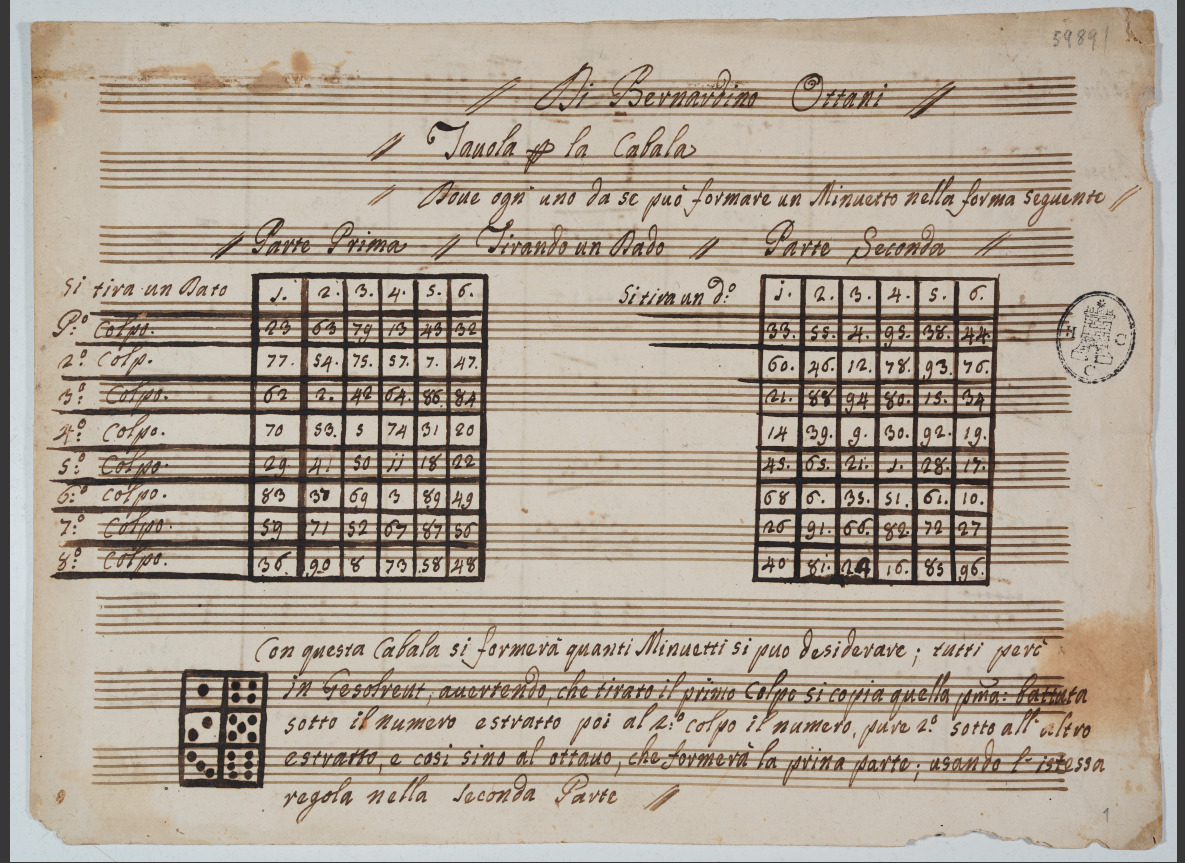 59891
// Di Bernardino Ottani //
// Tauola p la Cabala
// Doue ogni uno da se può formare un Minuetto nella forma seguente //
// Parte Prima // Tirando un Dado // Parte Seconda //
Si tira un Dato 1. 2. 3. 4. 5. 6.
P:º Colpo. 23 63 79 13 43 32
2.º Colp. 77. 54. 75. 57. 7. 47.
3.º Colpo. 62 2. 42 64. 86. 84
4.º Colpo. 70 53. 5 74 31 20
5.º Colpo. 29 41 50 11 18 22
6.º Colpo. 83 37 69 3 89 49
7.º Colpo. 59 71 52 67 87 56
8.º Colpo. 36. 90 8 73 58 48
Si tira un d.º 1. 2. 3. 4. 5. 6.
33. 55. 4. 95. 38. 44
60. 46. 12. 78. 93. 76.
21. 88 94 80. 15. 34
14 39. 9. 30. 92. 19.
45. 65. 21. 1. 28. 17.
68 6. 35. 51. 61. 10.
26 91. 66. 82. 72 27
40 81. 24 16. 85 96.
Con questa Cabala si formerà quanti Minuetti si puo desiderare; tutti però
in Gesolreut, auertendo, che tirato il primo Colpo si copia quella pma: battuta
sotto il numero estratto poi al 2.º colpo il numero, pure 2.º sotto all' altro
estratto, e cosi sino al ottauo, che formerà la prina parte; usando l' istessa
regola nella seconda Parte //
1